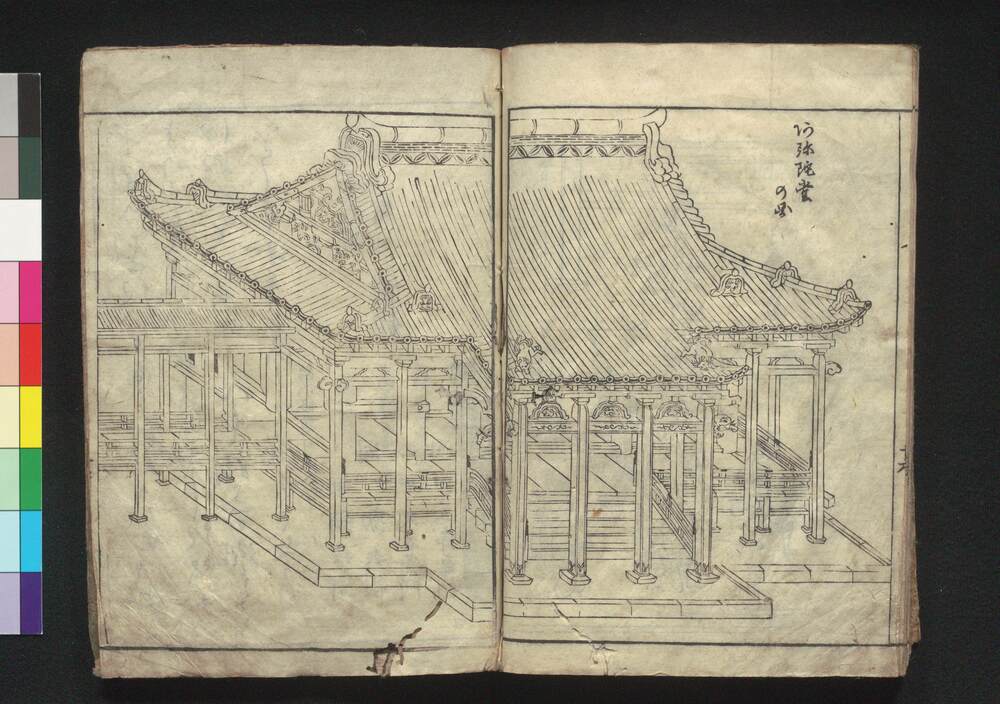 阿弥陀堂
の図